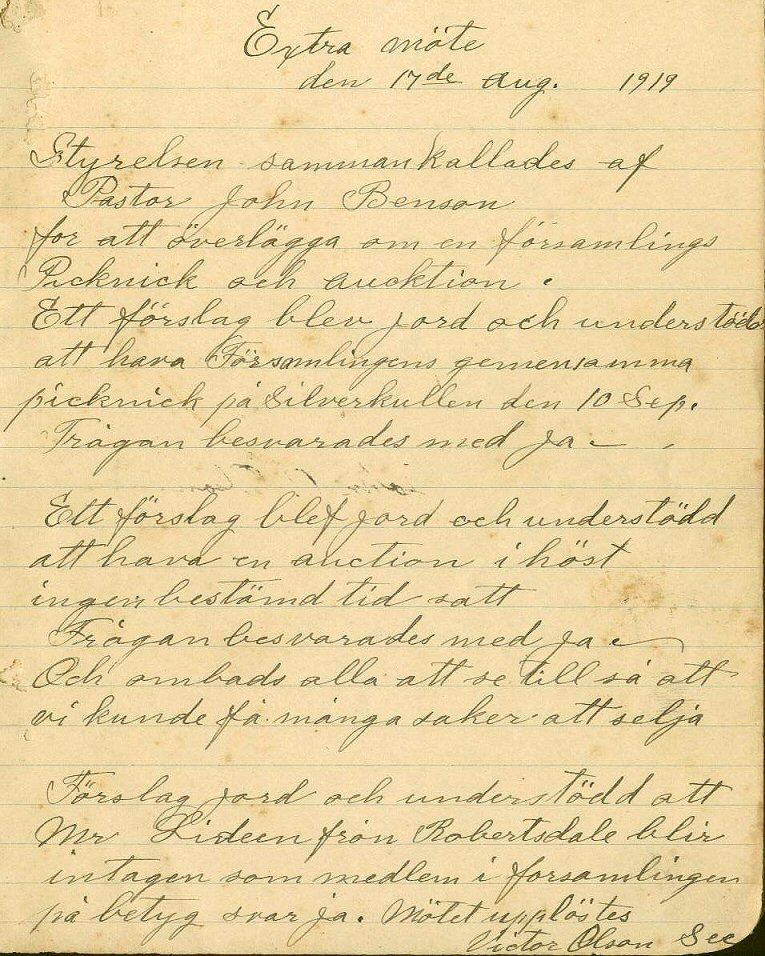 Extra möte
den 17de Aug. 1919
Styrelsen sammankallades af
Pastor John Benson
for att överlägga om en församlings
Picknick och aucktion.
Ett förslag blev jord och understödd
att hava Församlingens gemensamma
picknick på Silverkullen den 10 Sep.
Frågan besvarades med ja
Ett förslag blef jord och understödd
att hava en auction i höst
ingen bestämd tid satt
Frågan besvarades med ja
Och ombads alla att se till så att
vi kunde få många saker att selja
Förslag jord och understödd att
Mr Lideen från Robertsdale blir
intagen som medlem i forsamlingen
på betyg svar ja. Mötet upplöstes
Victor Olson Sec